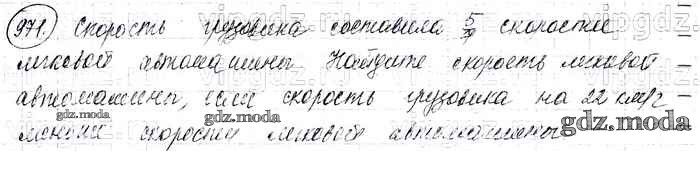 971. Скорость грузовика составила 5/7 скорости
легковой автомашины. Найдите скорость легковой
автомашины, если скорость грузовика на 22 км/ч
меньше скорости легковой автомашины
gdz.moda gdz.moda gdz.moda